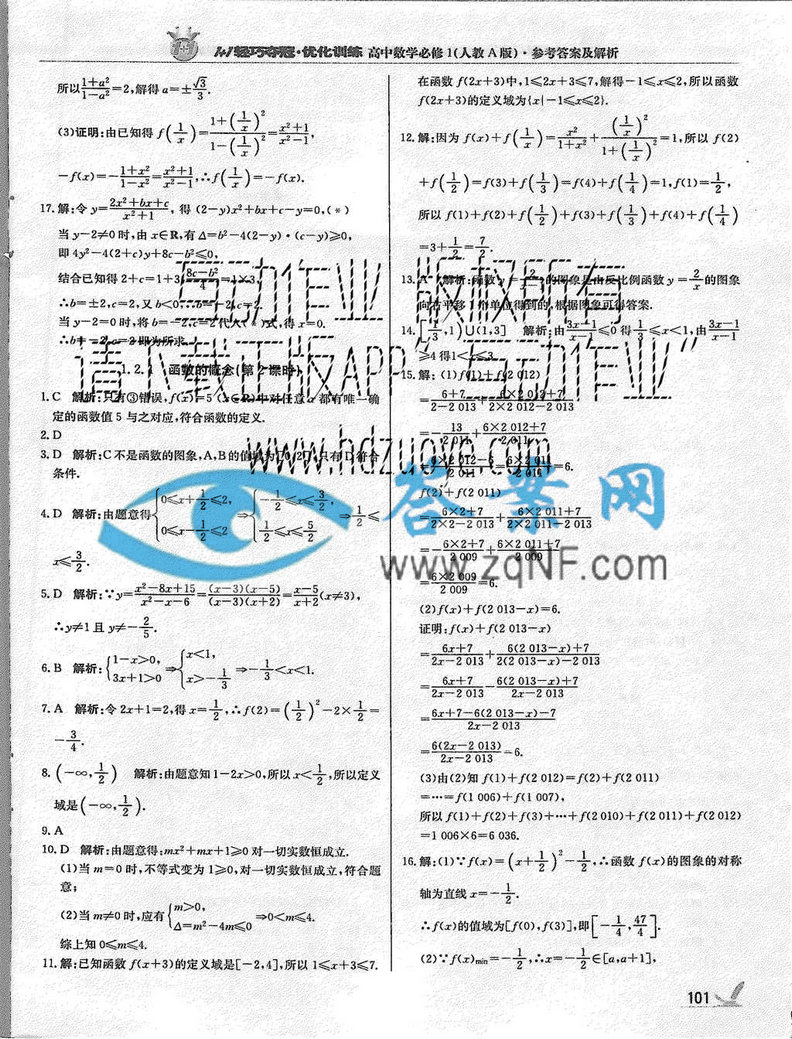 1+1轻巧夺冠·优化训练 高中数学必修1(人教A版)·参考答案及解析
所以(1+a²)/(1-a²)=2,解得a=±√3/3.
(3)证明:由已知得f(1/x)=(1+(1/x)²)/(1-(1/x)²)=(x²+1)/(x²-1),
-f(x)=-(1+x²)/(1-x²)=(x²+1)/(x²-1),∴f(1/x)=-f(x).
17.解:令y=(2x²+bx+c)/(x²+1),得(2-y)x²+bx+c-y=0,(*)
当y-2≠0时,由x∈R,有Δ=b²-4(2-y)·(c-y)≥0,
即4y²-4(2+c)y+8c-b²≤0,
结合已知得2+c=1+3,(8c-b²)/4=1×3,
∴b=±2,c=2,又b<0,∴b=-2,c=2.
当y-2=0时,将b=-2,c=2代入(*)式,得x=0.
∴b=-2,c=2即为所求.
1.2.1 函数的概念(第2课时)
1.C 解析:只有③错误,f(x)=5(x∈R)中对任意x都有唯一确
定的函数值5与之对应,符合函数的定义.
2.D
3.D 解析:C不是函数的图象,A,B的值域为[0,2],只有D符合
条件.
4.D 解析:由题意得{0≤x+1/2≤2, 0≤x-1/2≤2 ⇒{-1/2≤x≤3/2, 1/2≤x≤5/2 ⇒1/2≤
x≤3/2.
5.D 解析:∵y=(x²-8x+15)/(x²-x-6)=(x-3)(x-5)/(x-3)(x+2)=(x-5)/(x+2)(x≠3),
∴y≠1且y≠-2/5.
6.B 解析:{1-x>0, 3x+1>0 ⇒{x<1, x>-1/3 ⇒-1/3<x<1.
7.A 解析:令2x+1=2,得x=1/2,∴f(2)=(1/2)²-2×1/2=
-3/4.
8.(-∞,1/2) 解析:由题意知1-2x>0,所以x<1/2,所以定义
域是(-∞,1/2).
9.A
10.D 解析:由题意得:mx²+mx+1≥0对一切实数恒成立.
(1)当m=0时,不等式变为1≥0,对一切实数恒成立,符合题
意;
(2)当m≠0时,应有{m>0, Δ=m²-4m≤0 ⇒0<m≤4.
综上知0≤m≤4.
11.解:已知函数f(x+3)的定义域是[-2,4],所以1≤x+3≤7.
在函数f(2x+3)中,1≤2x+3≤7,解得-1≤x≤2,所以函数
f(2x+3)的定义域为{x|-1≤x≤2}.
12.解:因为f(x)+f(1/x)=x²/(1+x²)+(1/x)²/(1+(1/x)²)=1,所以f(2)
+f(1/2)=f(3)+f(1/3)=f(4)+f(1/4)=1,f(1)=1/2,
所以f(1)+f(2)+f(1/2)+f(3)+f(1/3)+f(4)+f(1/4)
=3+1/2=7/2.
13.A 解析:函数y= 的图象是由反比例函数y=2/x的图象
向右平移1个单位得到的,根据图象可得答案.
14.[1/3,1)∪(1,3] 解析:由(3x-1)/ ≤0得1/3≤x<1,由(3x-1)/
≥4得1<x≤3.
15.解:(1)f(1)+f(2 012)
=(6+7)/(2-2 013)+(6×2 012+7)/(2×2 012-2 013)
=-13/2 011+(6×2 012+7)/2 011
=(6×2 012-6)/2 011=(6×2 011)/2 011=6.
f(2)+f(2 011)
=(6×2+7)/(2×2-2 013)+(6×2 011+7)/(2×2 011-2 013)
=-(6×2+7)/2 009+(6×2 011+7)/2 009
=(6×2 009)/2 009=6.
(2)f(x)+f(2 013-x)=6.
证明:f(x)+f(2 013-x)
=(6x+7)/(2x-2 013)+(6(2 013-x)+7)/(2(2 013-x)-2 013)
=(6x+7)/(2x-2 013)-(6(2 013-x)+7)/(2x-2 013)
=(6x+7-6(2 013-x)-7)/(2x-2 013)
=6(2x-2 013)/(2x-2 013)=6.
(3)由(2)知f(1)+f(2 012)=f(2)+f(2 011)
=…=f(1 006)+f(1 007),
所以f(1)+f(2)+f(3)+…+f(2 010)+f(2 011)+f(2 012)
=1 006×6=6 036.
16.解:(1)∵f(x)=(x+1/2)²-1/2,∴函数f(x)的图象的对称
轴为直线x=-1/2.
∴f(x)的值域为[f(0),f(3)],即[-1/4,47/4].
(2)∵f(x)min=-1/2,∴x=-1/2∈[a,a+1],
101
互动作业 版权所有
请下载正版APP“互动作业”
www.hdzuoye.com
答案网
www.zqNF.com